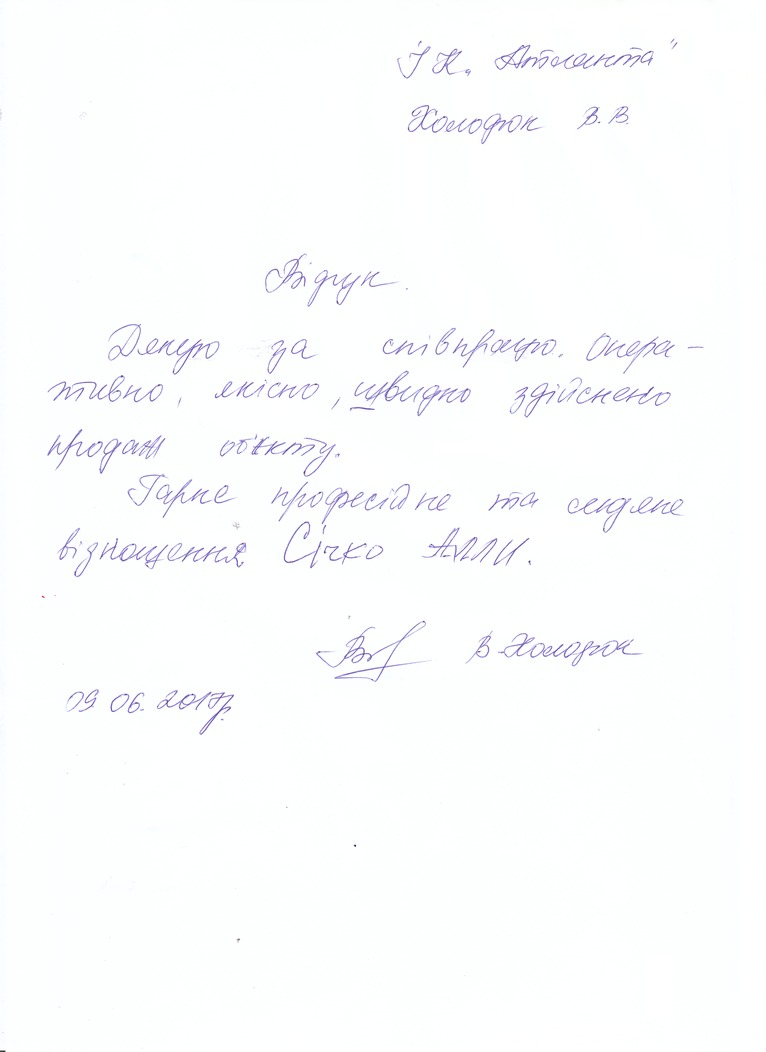 ІК "Атланта"
Холодюк В.В.
Відгук.
Дякую за співпрацю. Опера-
тивно, якісно, швидко здійснено
продаж об'єкту.
Гарне професійне та
візношення Січко АЛЛИ.
В. Холодюк
09.06.2017р.